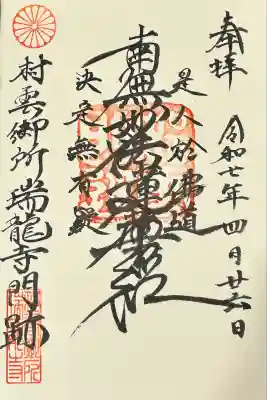 奉拝
令和七年四月廿六日
是人於佛道
南無妙法蓮華経
決定無有疑
村雲御所瑞龍寺門跡